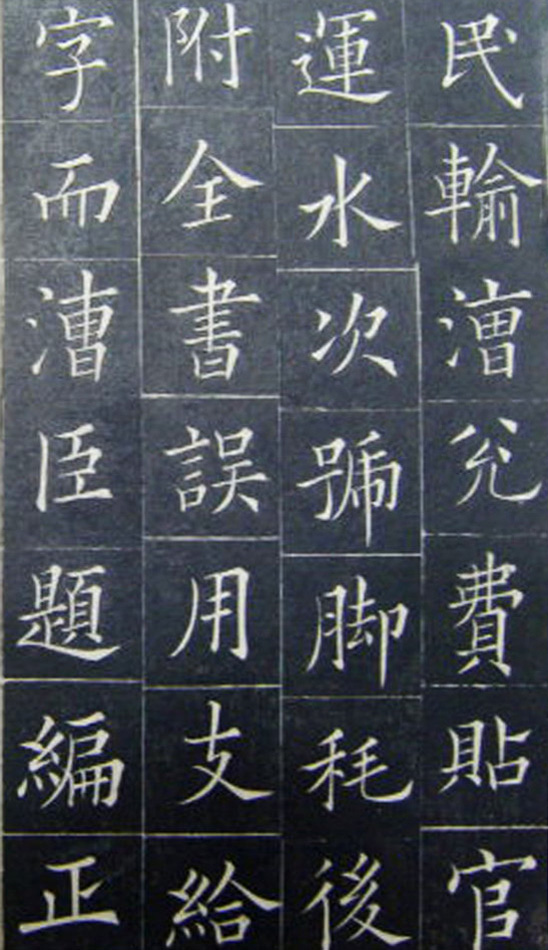 民輸漕兊費貼官
運水次號脚耗後
附全書誤用支給
字而漕臣題編正